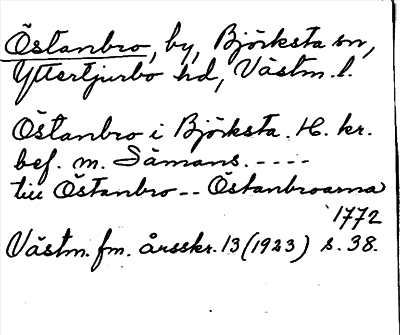 Östanbro, by, Björksta sn,
Yttertjurbo hd, Västm. l.
Östanbro i Björksta. H. kr.
bef. m. Sämans. - - - -
till Östanbro - - Östanbroarna
1772
Västm. fm. årsskr. 13 (1923) s. 38.